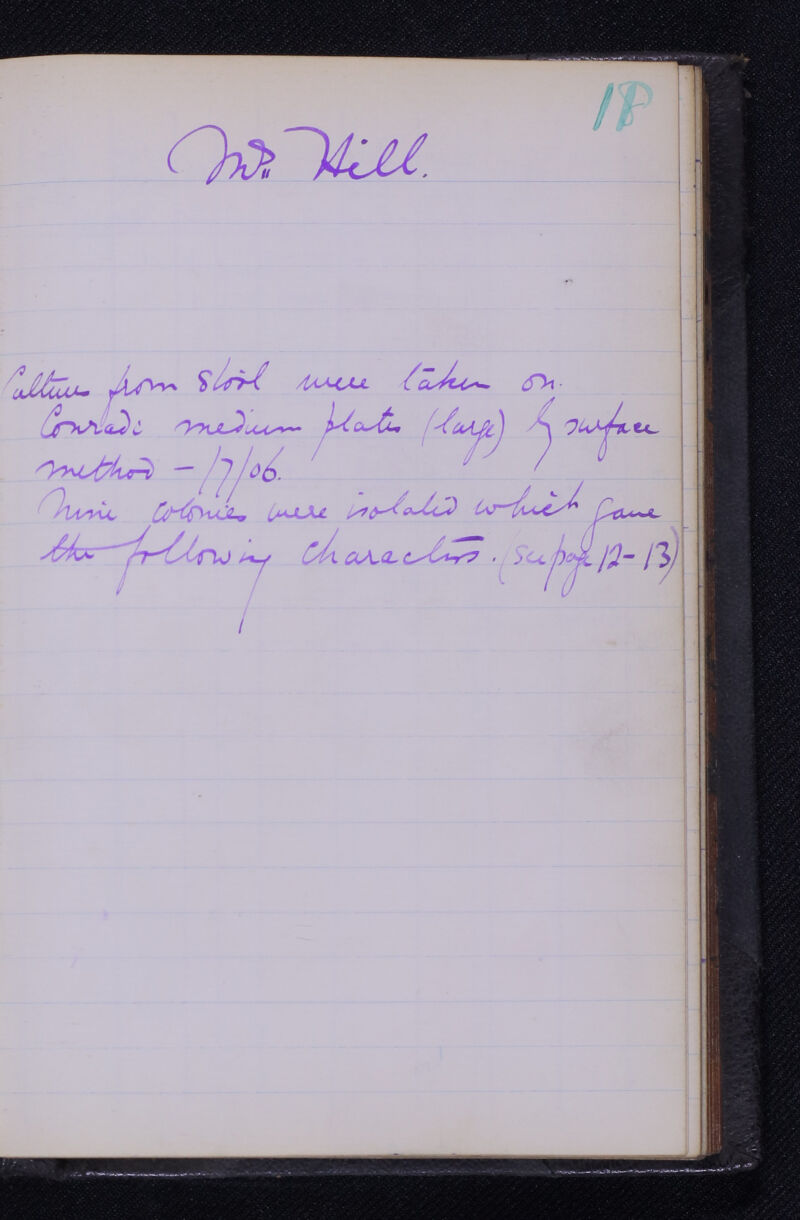 18
Mr. Hill.
Cultures from stool were taken on.
Conradi medium plates (large) by surface
method - /7/06.
Nine colonies were isolated which gave
the following characters. (see page 12-13)